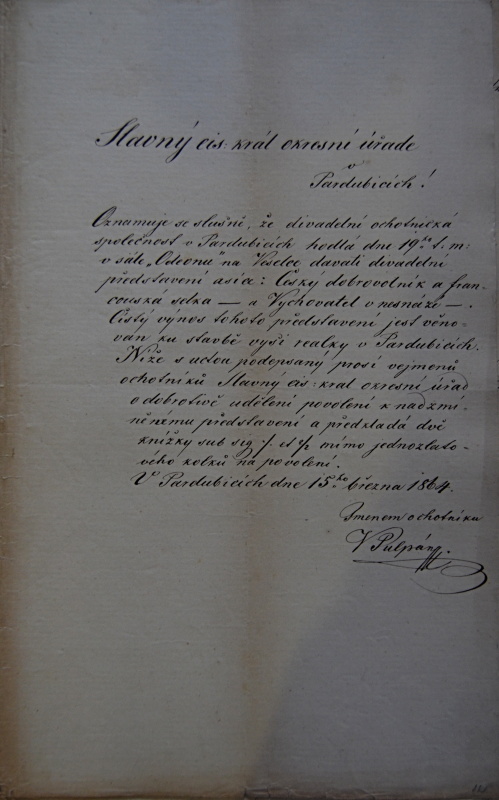 Slavný cis: král okresní úřade
v
Pardubicích!
Oznamuje se slušně, že divadelní ochotnická
společnost v Pardubicích hodlá dne 19ho t. m:
v sále „Odeonu" na Veselce davati divadelní
představení asice: Český dobrovolník a fran-
couská selka — a Vychovatel v nesnázi —.
Čistý výnos tohoto představení jest věno-
ván ku stavbě vyší realky v Pardubicích.
Níže s uctou podepsaný prosí vejmenu
ochotníků Slavný cis: kral okresní úřad
o dobrotivé udělení povolení k nadzmí-
něnému představení a předkládá dvě
knížky sub sig ·/. et 2/. mimo jednozlato-
vého kolků na povolení.
V Pardubicích dne 15ho března 1864.
Jmenem ochotníku
V Pulpán